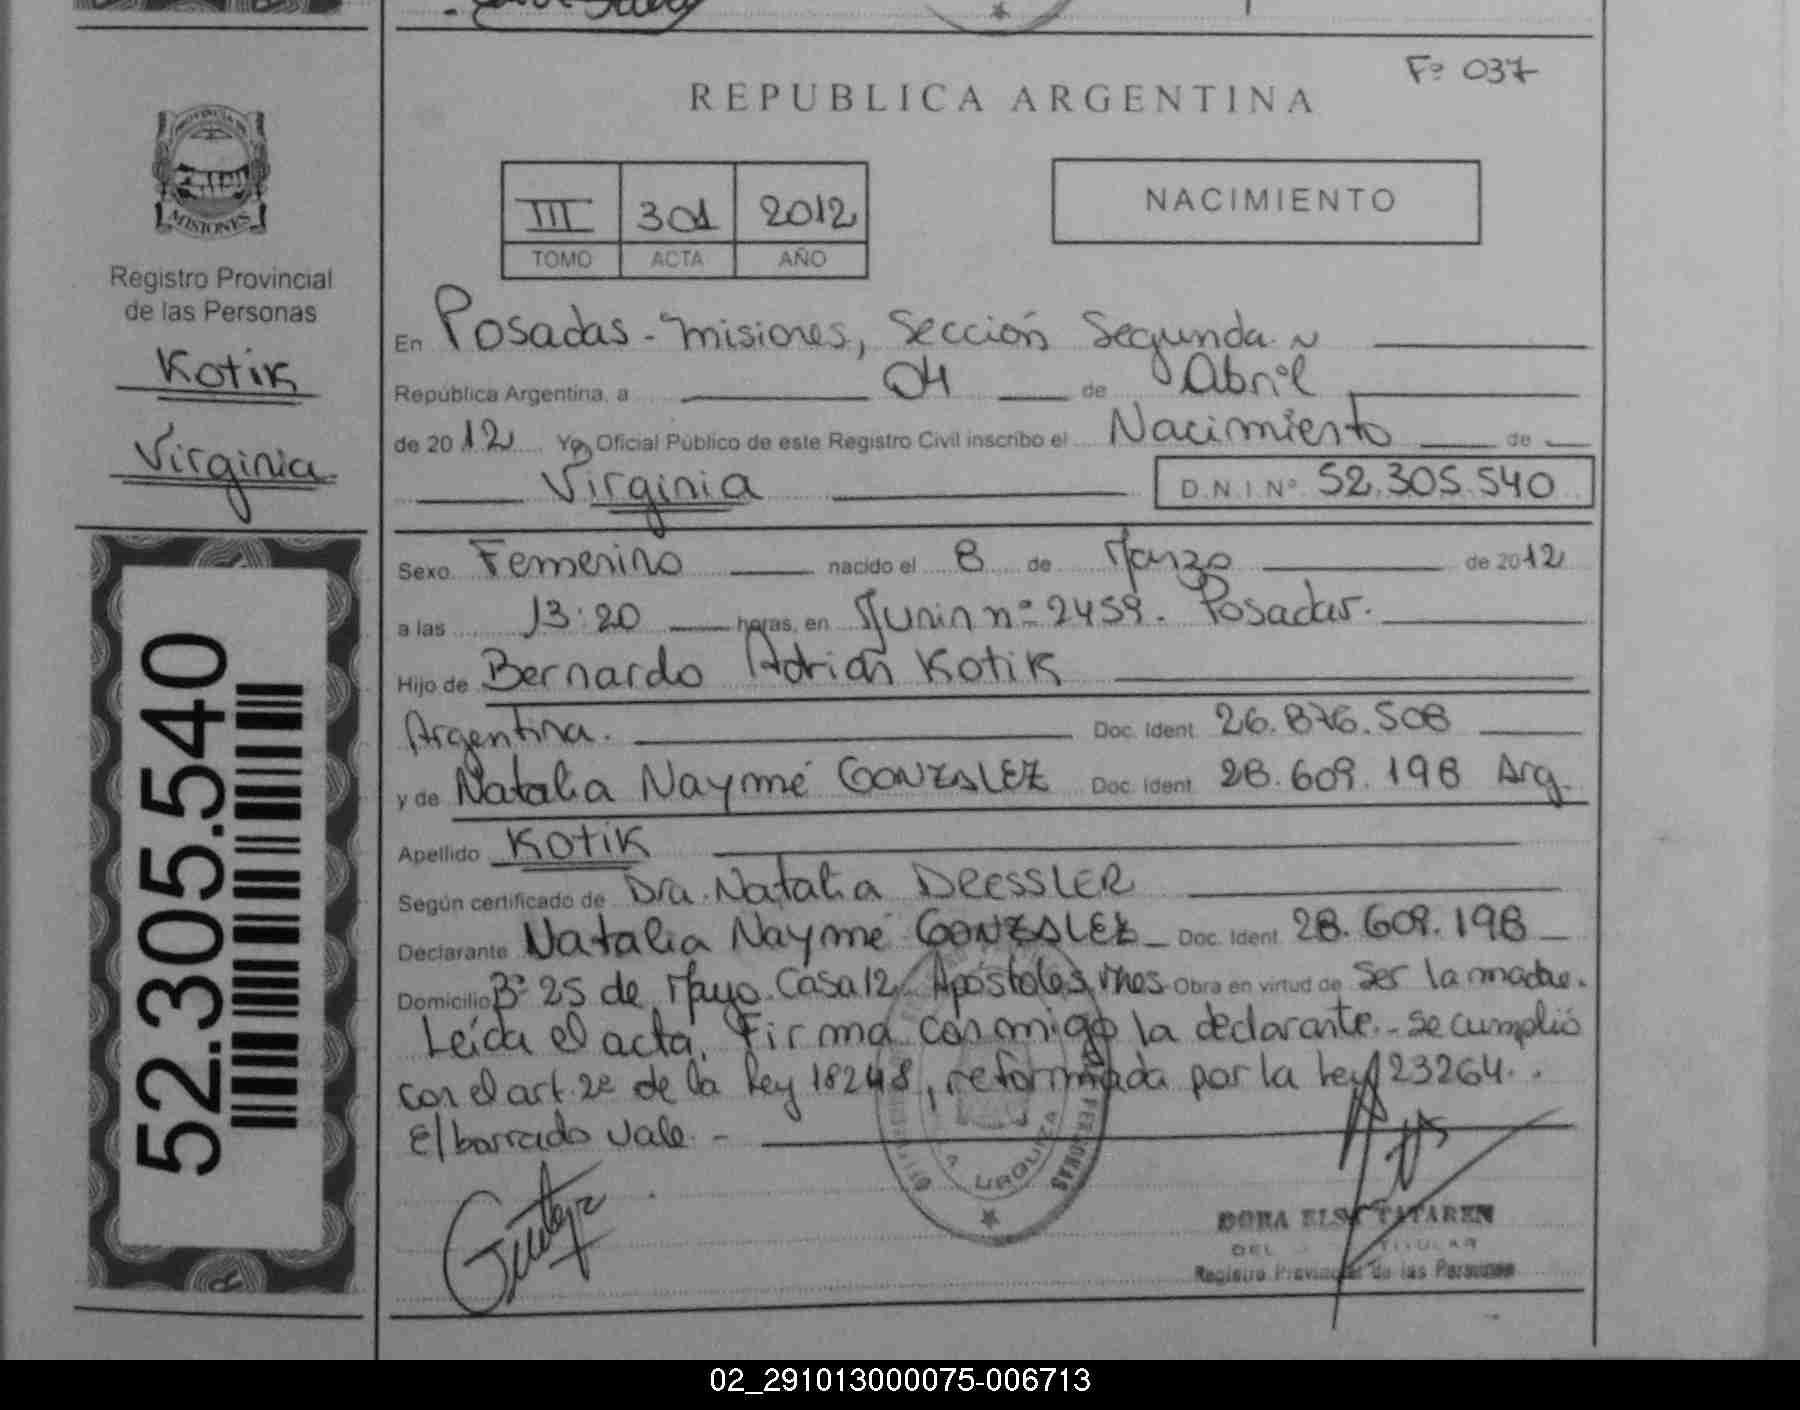 Fº 037
REPUBLICA ARGENTINA
III 301 2012
TOMO ACTA AÑO
NACIMIENTO
PROVINCIA DE
MISIONES
Registro Provincial
de las Personas
Kotik
Virginia
52.305.540
En Posadas - Misiones, Sección Segunda
República Argentina, a 04 de Abril
de 2012 Yo, Oficial Público de este Registro Civil inscribo el Nacimiento de
Virginia D.N.I.Nº 52.305.540
Sexo Femenino nacido el 8 de Marzo de 2012
a las 13:20 horas, en Junin nº 2459. Posadas.
Hijo de Bernardo Adrián Kotik
Argentina. Doc. Ident. 26.876.508
y de Natalia Naymé GONZALEZ Doc. Ident. 28.609.198 Arg.
Apellido Kotik
Según certificado de Dra. Natalia DRESSLER
Declarante Natalia Naymé GONZALEZ Doc. Ident. 28.609.198
Domicilio Bº 25 de Mayo. Casa 12 Apóstoles, Mnes Obra en virtud de Ser la madre.
Leída el acta, Firma conmigo la declarante.- Se cumplió
con el art. 2º de la Ley 18248, reformada por la Ley 23264.
El borrado vale. -
URQUIZA
DORA ELSA TATAREN
TITULAR
Registro Provincial de las Personas
02_291013000075-006713